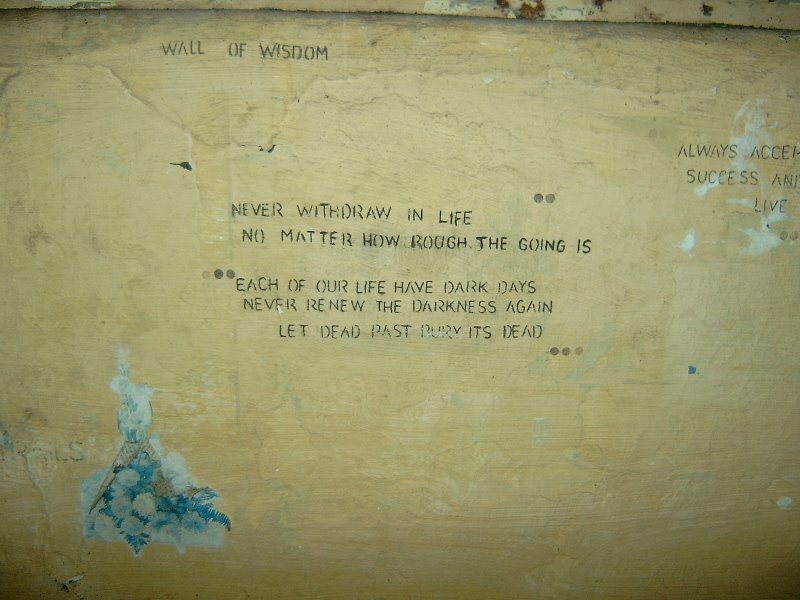 WALL OF WISDOM
NEVER WITHDRAW IN LIFE
NO MATTER HOW ROUGH THE GOING IS
EACH OF OUR LIFE HAVE DARK DAYS
NEVER RENEW THE DARKNESS AGAIN
LET DEAD PAST BURY ITS DEAD
ALWAYS
SUCCESS
LIVE